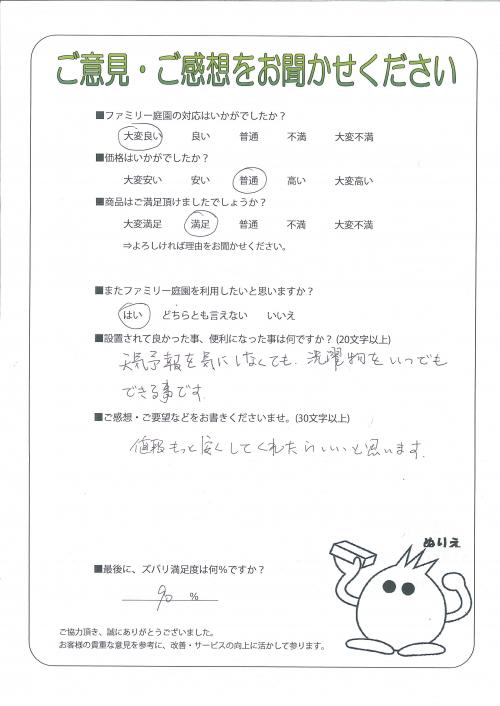 ご意見・ご感想をお聞かせください
■ファミリー庭園の対応はいかがでしたか？
大変良い 良い 普通 不満 大変不満
■価格はいかがでしたか？
大変安い 安い 普通 高い 大変高い
■商品はご満足頂けましたでしょうか？
大変満足 満足 普通 不満 大変不満
⇒よろしければ理由をお聞かせください。
■またファミリー庭園を利用したいと思いますか？
はい どちらとも言えない いいえ
■設置されて良かった事、便利になった事は何ですか？(20文字以上)
天気予報を気にしなくても、洗濯物をいつでも
できる事です。
■ご感想・ご要望などをお書きくださいませ。(30文字以上)
値段もっと安くしてくれたらいいと思います。
ぬりえ
■最後に、ズバリ満足度は何%ですか？
90 %
ご協力頂き、誠にありがとうございました。
お客様の貴重な意見を参考に、改善・サービスの向上に活かして参ります。